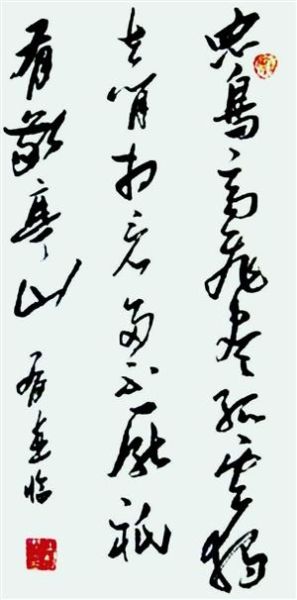 眾鳥高飛盡孤雲獨
去閒相看兩不厭祇
有敬亭山
臨